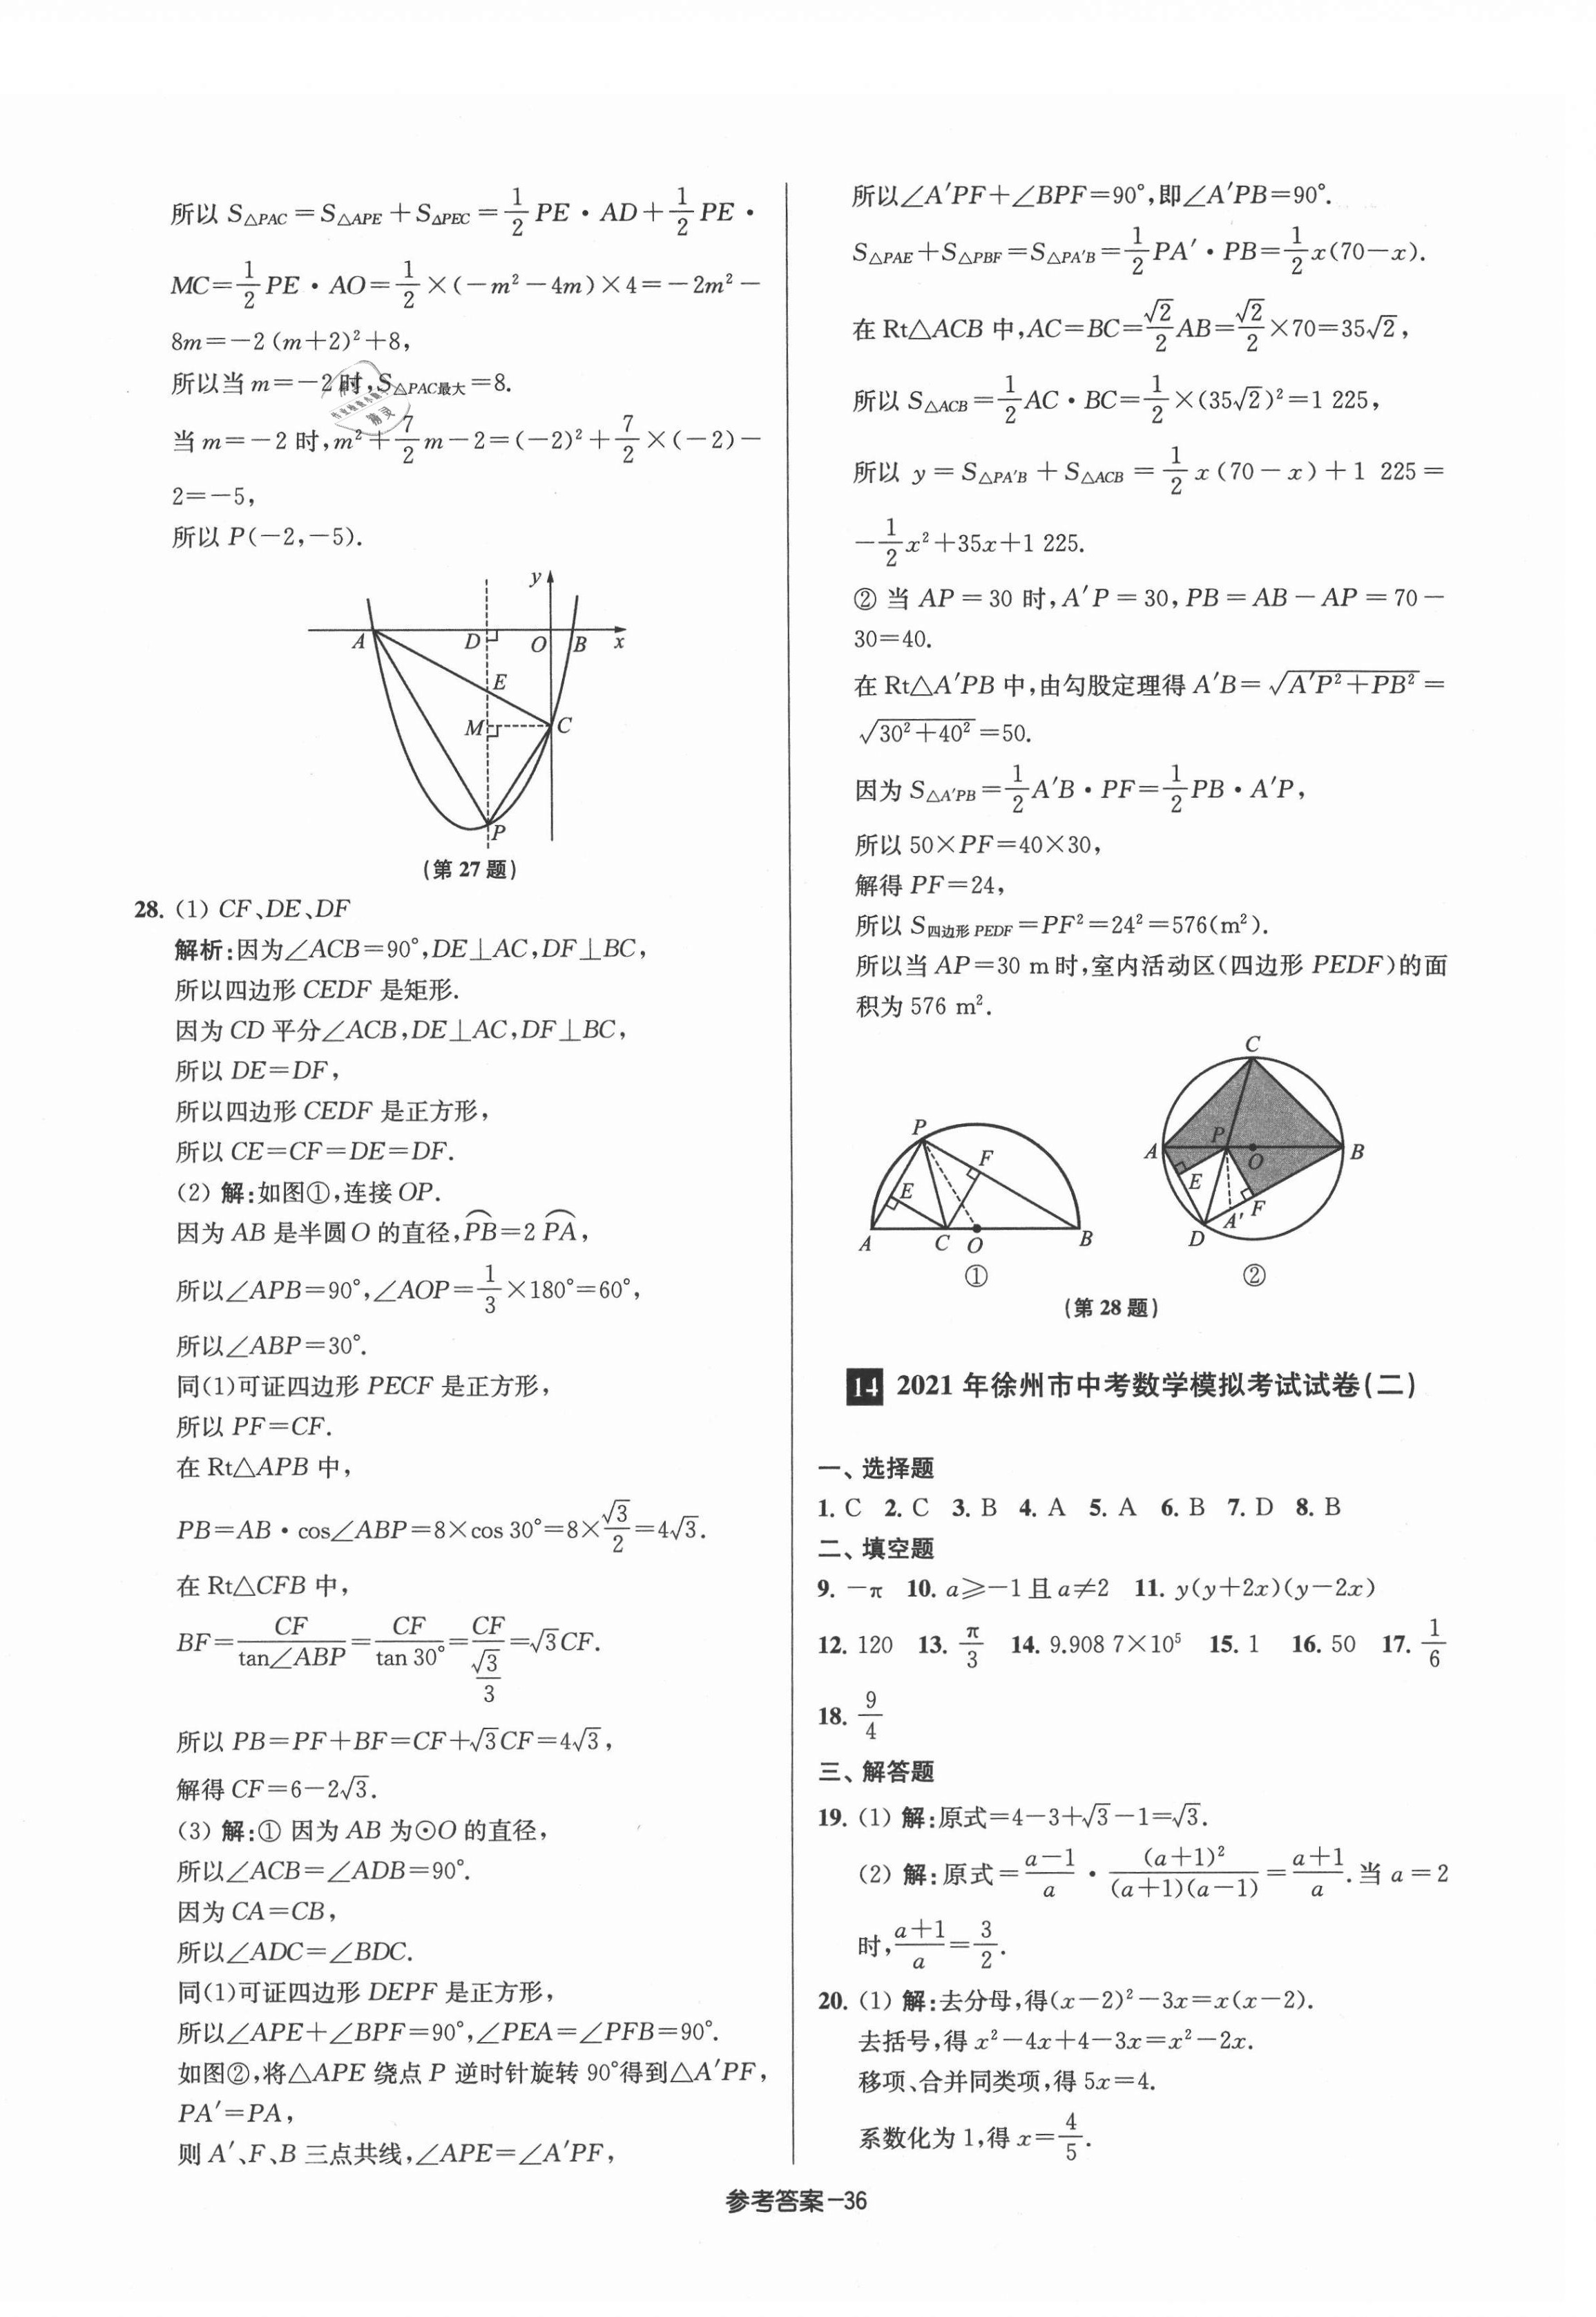 所以 S△PAC＝S△APE＋S△PEC＝1/2 PE・AD＋1/2 PE・
MC＝1/2 PE・AO＝1/2×(－m²－4m)×4＝－2m²－
8m＝－2(m＋2)²＋8,
所以当 m＝－2 时,S△PAC最大＝8.
当 m＝－2 时,m²＋7/2 m－2＝(－2)²＋7/2×(－2)－
2＝－5,
所以 P(－2,－5).
y
A D O B x
E
M C
P
(第 27 题)
28. (1) CF、DE、DF
解析:因为∠ACB＝90°,DE⊥AC,DF⊥BC,
所以四边形 CEDF 是矩形.
因为 CD 平分∠ACB,DE⊥AC,DF⊥BC,
所以 DE＝DF,
所以四边形 CEDF 是正方形,
所以 CE＝CF＝DE＝DF.
(2) 解:如图①,连接 OP.
因为 AB 是半圆 O 的直径,P͡B＝2 P͡A,
所以∠APB＝90°,∠AOP＝1/3×180°＝60°,
所以∠ABP＝30°.
同(1)可证四边形 PECF 是正方形,
所以 PF＝CF.
在 Rt△APB 中,
PB＝AB・cos∠ABP＝8×cos 30°＝8×√3/2＝4√3.
在 Rt△CFB 中,
BF＝CF/tan∠ABP＝CF/tan 30°＝CF/(√3/3)＝√3CF.
所以 PB＝PF＋BF＝CF＋√3CF＝4√3,
解得 CF＝6－2√3.
(3) 解:① 因为 AB 为⊙O 的直径,
所以∠ACB＝∠ADB＝90°.
因为 CA＝CB,
所以∠ADC＝∠BDC.
同(1)可证四边形 DEPF 是正方形,
所以∠APE＋∠BPF＝90°,∠PEA＝∠PFB＝90°.
如图②,将△APE 绕点 P 逆时针旋转 90°得到△A′PF,
PA′＝PA,
则 A′、F、B 三点共线,∠APE＝∠A′PF,
所以∠A′PF＋∠BPF＝90°,即∠A′PB＝90°.
S△PAE＋S△PBF＝S△PA′B＝1/2 PA′・PB＝1/2 x(70－x).
在 Rt△ACB 中,AC＝BC＝√2/2 AB＝√2/2×70＝35√2,
所以 S△ACB＝1/2 AC・BC＝1/2×(35√2)²＝1 225,
所以 y＝S△PA′B＋S△ACB＝1/2 x(70－x)＋1 225＝
－1/2 x²＋35x＋1 225.
② 当 AP＝30 时,A′P＝30,PB＝AB－AP＝70－
30＝40.
在 Rt△A′PB 中,由勾股定理得 A′B＝√(A′P²＋PB²)＝
√(30²＋40²)＝50.
因为 S△A′PB＝1/2 A′B・PF＝1/2 PB・A′P,
所以 50×PF＝40×30,
解得 PF＝24,
所以 S四边形 PEDF＝PF²＝24²＝576(m²).
所以当 AP＝30 m 时,室内活动区(四边形 PEDF)的面
积为 576 m².
P F E A C O B
①
C A P O B E A′ F D
②
(第 28 题)
14 2021 年徐州市中考数学模拟考试试卷(二)
一、选择题
1. C 2. C 3. B 4. A 5. A 6. B 7. D 8. B
二、填空题
9. －π 10. a≥－1 且 a≠2 11. y(y＋2x)(y－2x)
12. 120 13. π/3 14. 9.908 7×10⁵ 15. 1 16. 50 17. 1/6
18. 9/4
三、解答题
19. (1) 解:原式＝4－3＋√3－1＝√3.
(2) 解:原式＝(a－1)/a・(a＋1)²/((a＋1)(a－1))＝(a＋1)/a.当 a＝2
时,(a＋1)/a＝3/2.
20. (1) 解:去分母,得(x－2)²－3x＝x(x－2).
去括号,得 x²－4x＋4－3x＝x²－2x.
移项、合并同类项,得 5x＝4.
系数化为 1,得 x＝4/5.
参考答案－36